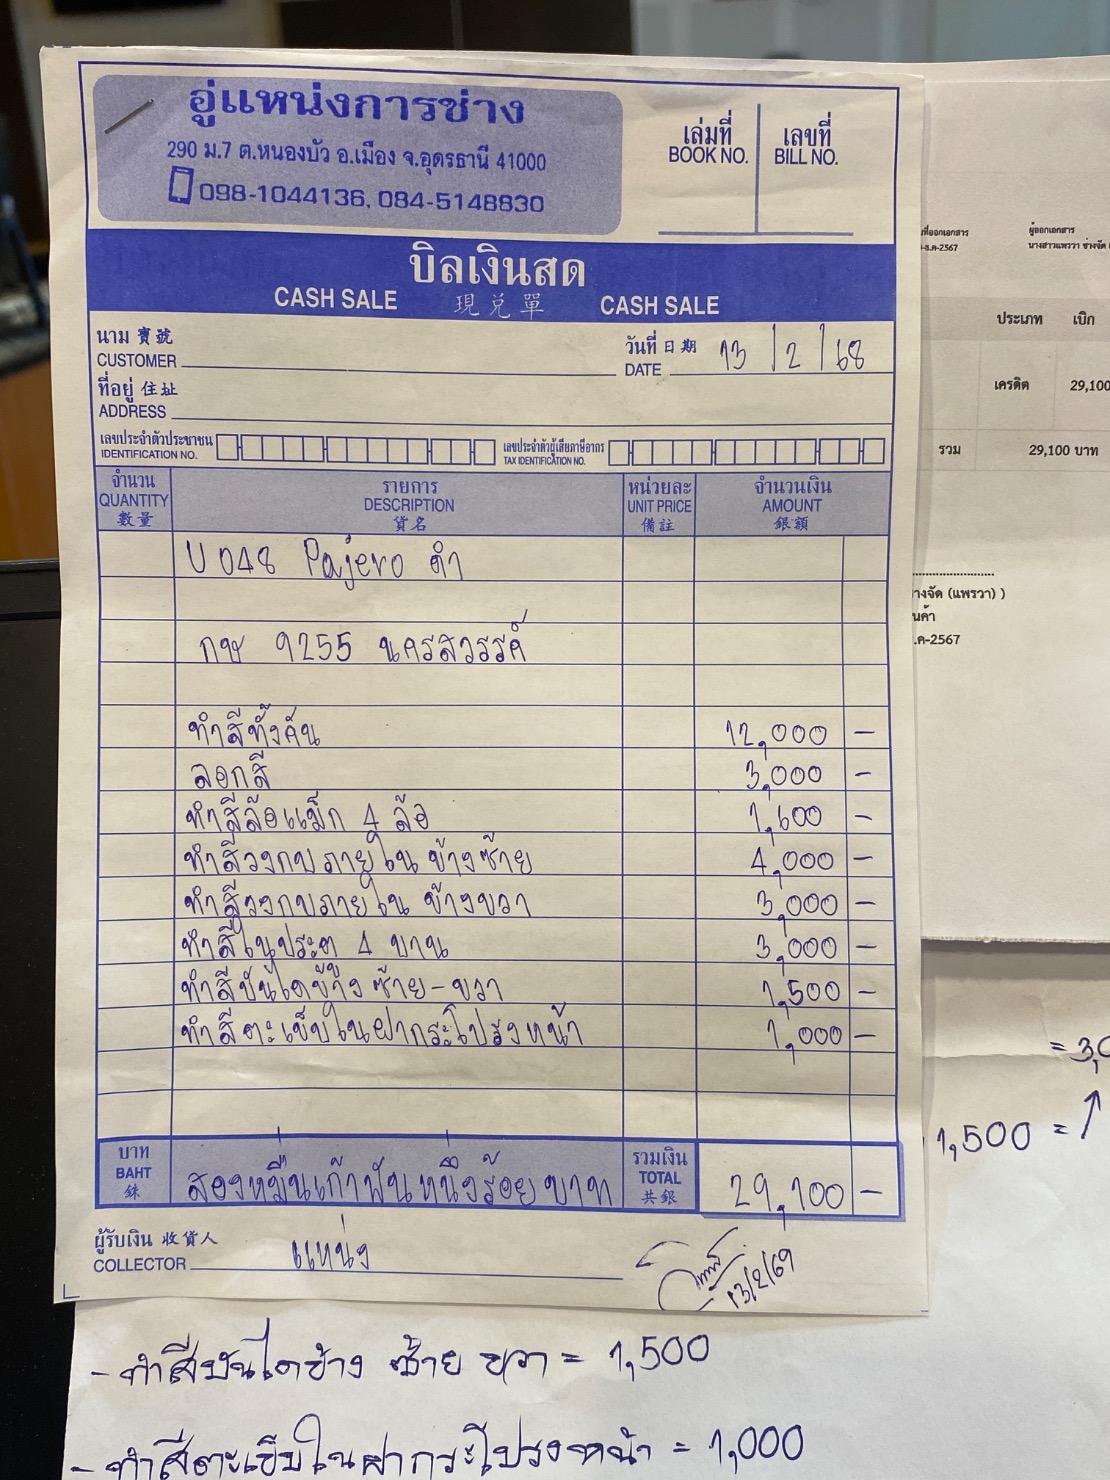 อู่แหน่งการช่าง
290 ม.7 ต.หนองบัว อ.เมือง จ.อุดรธานี 41000
098-1044136, 084-5148830
เล่มที่ เลขที่
BOOK NO. BILL NO.
บิลเงินสด
CASH SALE 現兌單 CASH SALE
นาม 寶號
CUSTOMER
วันที่ 日期
DATE 13 / 2 / 68
ที่อยู่ 住址
ADDRESS
เลขประจำตัวประชาชน
IDENTIFICATION NO.
เลขประจำตัวผู้เสียภาษีอากร
TAX IDENTIFICATION NO.
จำนวน รายการ หน่วยละ จำนวนเงิน
QUANTITY DESCRIPTION UNIT PRICE AMOUNT
數量 貨名 備註 銀額
U048 Pajero ดำ
กษ 9255 นครสวรรค์
ทำสีทั้งคัน 12,000 -
ลอกสี 3,000 -
ทำสีล้อแม็ก 4 ล้อ 1,600 -
ทำสีวงกบภายใน ข้างซ้าย 4,000 -
ทำสีวงกบภายใน ข้างขวา 3,000 -
ทำสีในประตู 4 บาน 3,000 -
ทำสีบันไดข้าง ซ้าย-ขวา 1,500 -
ทำสีตะเข็บในฝากระโปรงหน้า 1,000 -
บาท
BAHT สองหมื่นเก้าพันหนึ่งร้อยบาท
銖
รวมเงิน
TOTAL 29,100 -
共銀
ผู้รับเงิน 收貨人
COLLECTOR แหน่ง
13/2/69
- ทำสีบันไดข้าง ซ้าย ขวา = 1,500
- ทำสีตะเข็บในฝากระโปรงหน้า = 1,000
ที่ออกเอกสาร ผู้ออกเอกสาร
-ธ.ค-2567 นางสาวแพรวา ช่างจัด
ประเภท เบิก
เครดิต 29,100
รวม 29,100 บาท
างจัด (แพรวา) )
นค้า
.ค-2567
= 3,0
1,500 = ↑